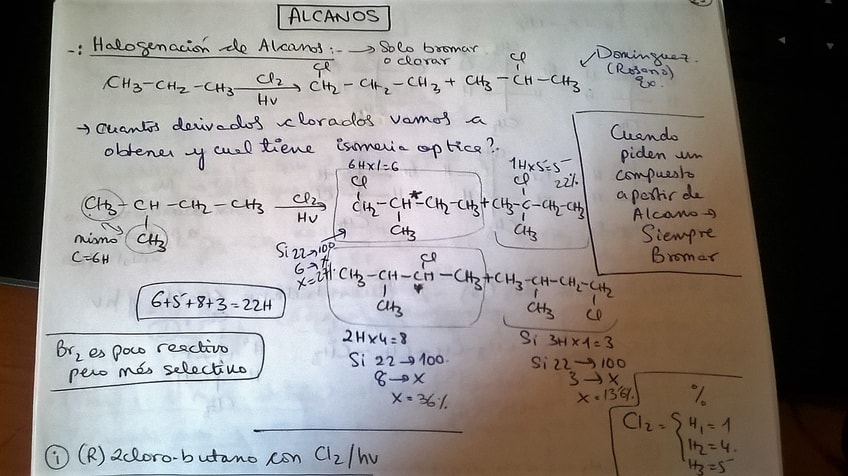 ALCANOS
-: Halogenación de Alcanos:- → Solo bromar
o clorar
Dominguez
(Rosana)
Qo.
Cl Cl
CH3-CH2-CH3 + Cl2 → CH2-CH2-CH3 + CH3-CH-CH3
hν
→ Cuantos derivados clorados vamos a
obtener y cual tiene isomeria optica?.
Cuando
piden un
compuesto
a partir de
Alcano →
Siempre
Bromar
6H×1=6 1H×5=5
22%
Cl Cl
CH3-CH-CH2-CH3 Cl2 → CH2-CH*-CH2-CH3 + CH3-C-CH2-CH3
hν
CH3 CH3 CH3
mismo
C=6H
Si 22→100
6→x
x=27%
Cl
CH3-CH-CH-CH3 + CH3-CH-CH2-CH2
*
CH3 CH3 Cl
6+5+8+3=22H
2H×4=8
Si 22→100
8→x
x=36%
Si 3H×1=3
Si 22→100
3→x
x=13'6%
Br2 es poco reactivo
pero más selectivo
%
Cl2= { H1=1
H2=4
H3=5
i (R) 2cloro-butano con Cl2/hν